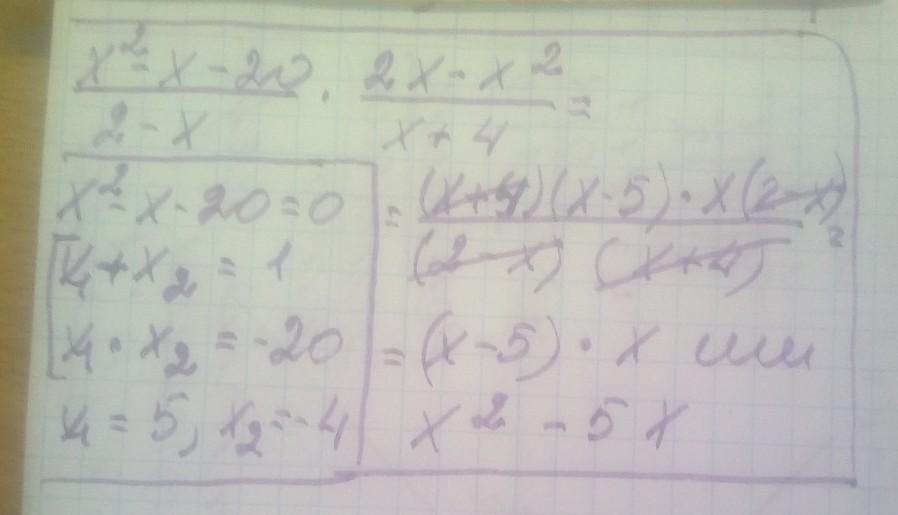 x² - x - 20 / 2 - x · 2x - x² / x + 4 =
x² - x - 20 = 0
x₁ + x₂ = 1
x₁ · x₂ = -20
x₁ = 5, x₂ = -4
= (x+4)(x-5) · x(2-x) / (2-x) (x+4) =
= (x-5) · x или
x² - 5x